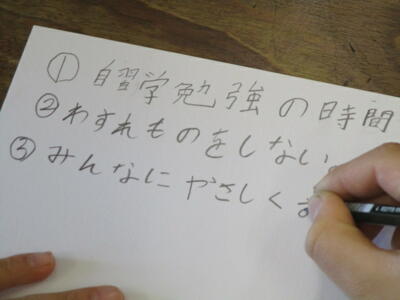 ① 自習学勉強の時間
② わすれものをしない。
③ みんなにやさしく